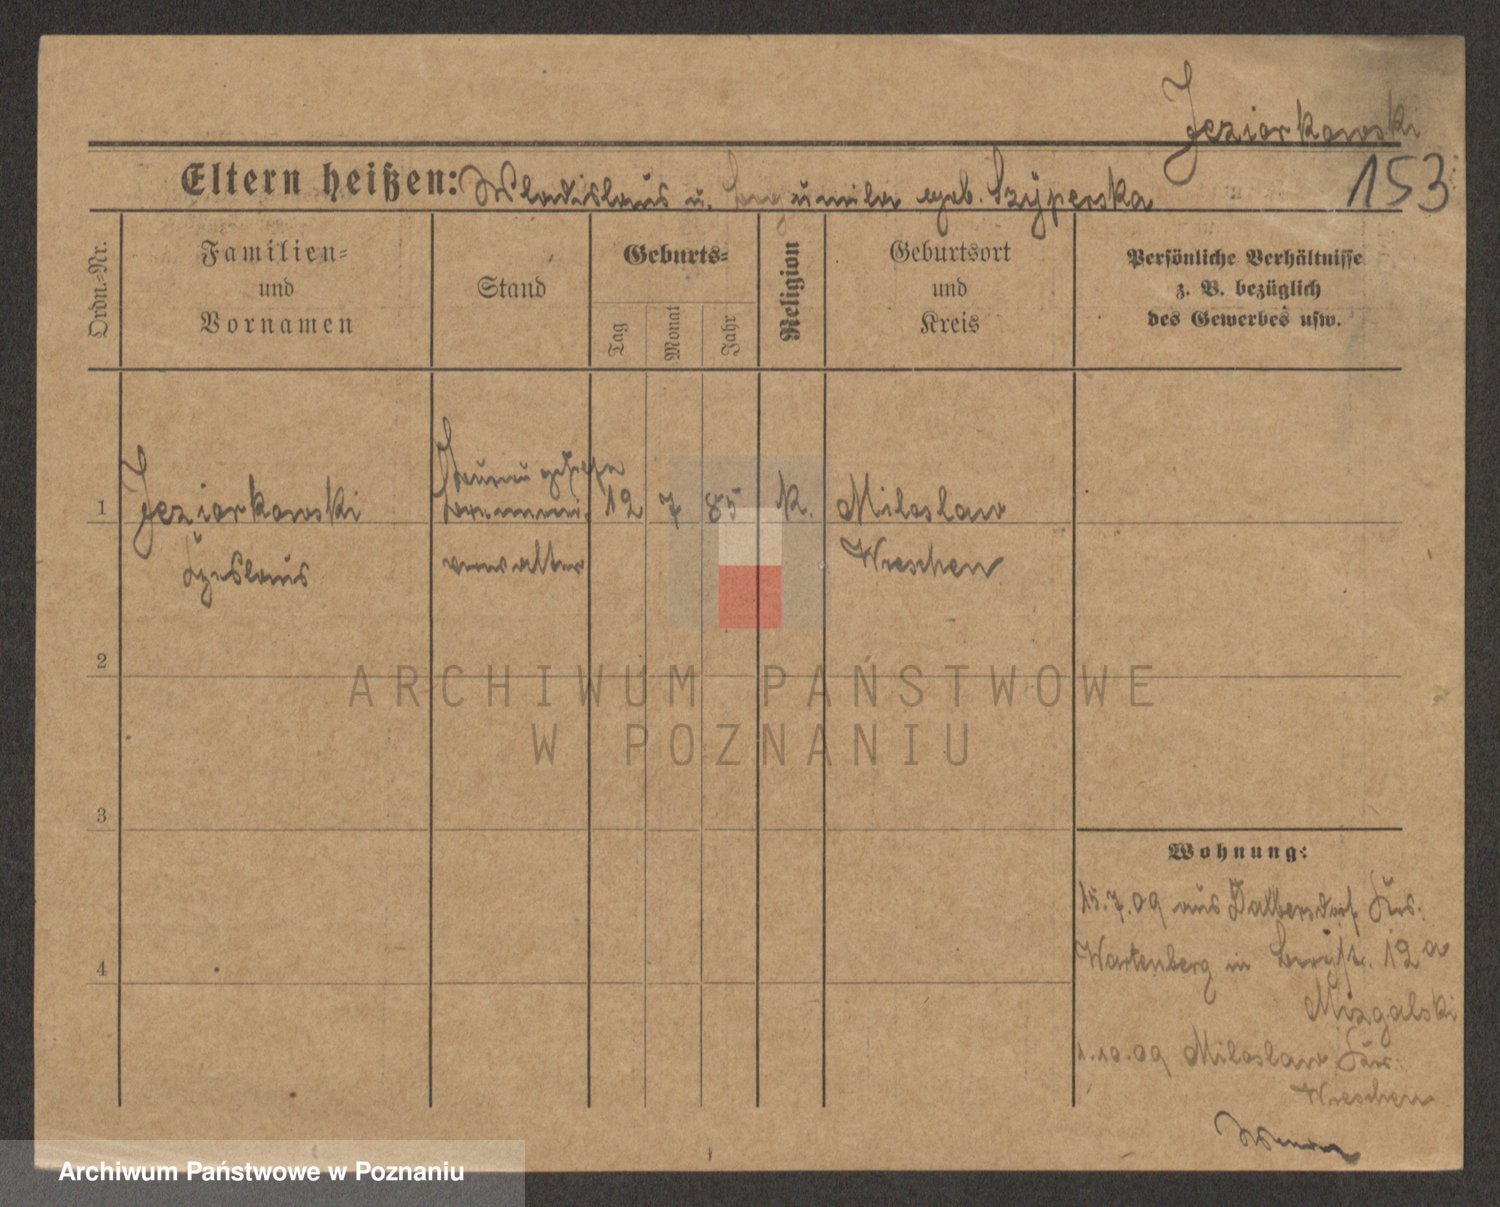 Jeziorkowski
153
Eltern heißen: Wladislaus u. geb. Szyperska
Ordn.-Nr.
Familien-
und
Vornamen
Stand
Geburts-
Tag
Monat
Jahr
Religion
Geburtsort
und
Kreis
Persönliche Verhältnisse
z. B. bezüglich
des Gewerbes usw.
1
Jeziorkowski
12
7
85
K.
Miloslaw
Czeslaus
verwalter
Wreschen
2
ARCHIWUM PAŃSTWOWE
W POZNANIU
3
Wohnung:
15.7.09 aus Dalbersdorf Krs.
4
Wartenberg in 12a
Mizgalski
1.10.09 Miloslaw Krs.
Wreschen
Archiwum Państwowe w Poznaniu